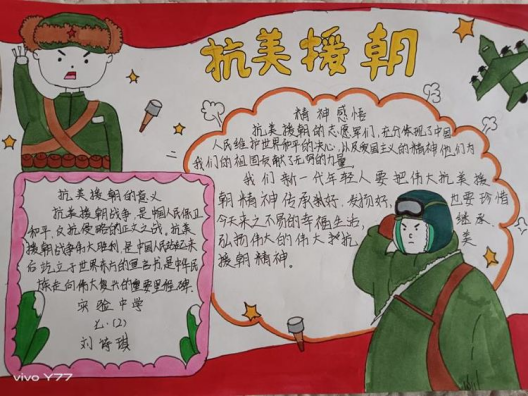 抗美援朝
精神感悟
抗美援朝的志愿军们,充分体现了中国
人民维护世界和平的决心,以及爱国主义的精神他们为
我们的祖国贡献了无穷的力量
我们新一代年轻人要把伟大抗美援
朝精神传承教好,发扬好,也要珍惜
今天来之不易的幸福生活,继承
弘扬伟大的伟大抗美
援朝精神。
抗美援朝的意义
抗美援朝战争,是中国人民保卫
和平、反抗侵略的正义之战,抗美
援朝战争伟大胜利,是中国人民站起来
后屹立于世界东方的宣言书,是中华民
族走向伟大复兴的重要里程碑.
实验中学
七.(2)
刘诗琪
vivo Y77